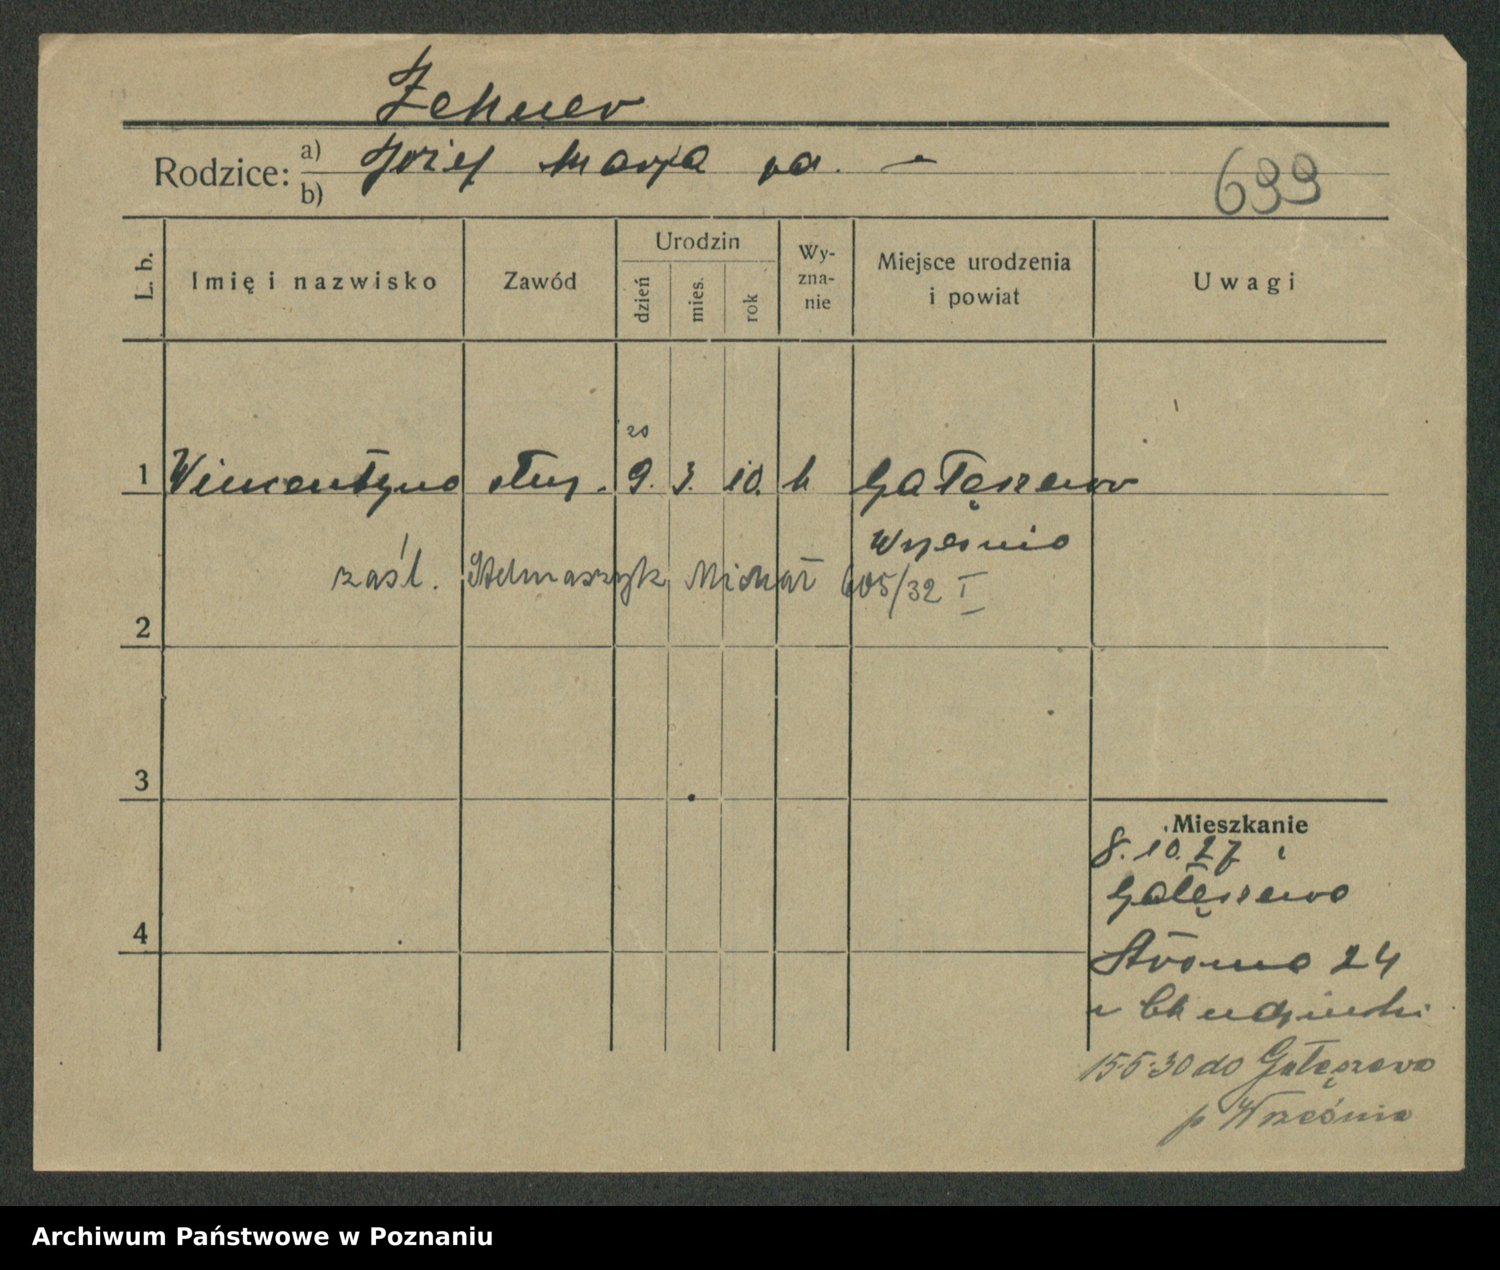 Zehner
Rodzice: a) Józef Marja
b)
699
L. b.
Imię i nazwisko
Zawód
Urodzin
dzień
mies.
rok
Wy-
zna-
nie
Miejsce urodzenia
i powiat
Uwagi
20
1 Wincentyna służ. 9. 3. 10. k Gałęzewo
Września
zaśl. Stelmaszyk Michał 605/32 I
2
3
4
Mieszkanie
8.10.27
Gałęzewo
Stroma 24
15.5.30 do Gałęzewa
p Września
Archiwum Państwowe w Poznaniu